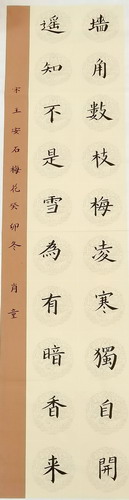 墙角數枝梅凌寒獨自開
遥知不是雪為有暗香来
宋王安石梅花癸卯冬 肖童